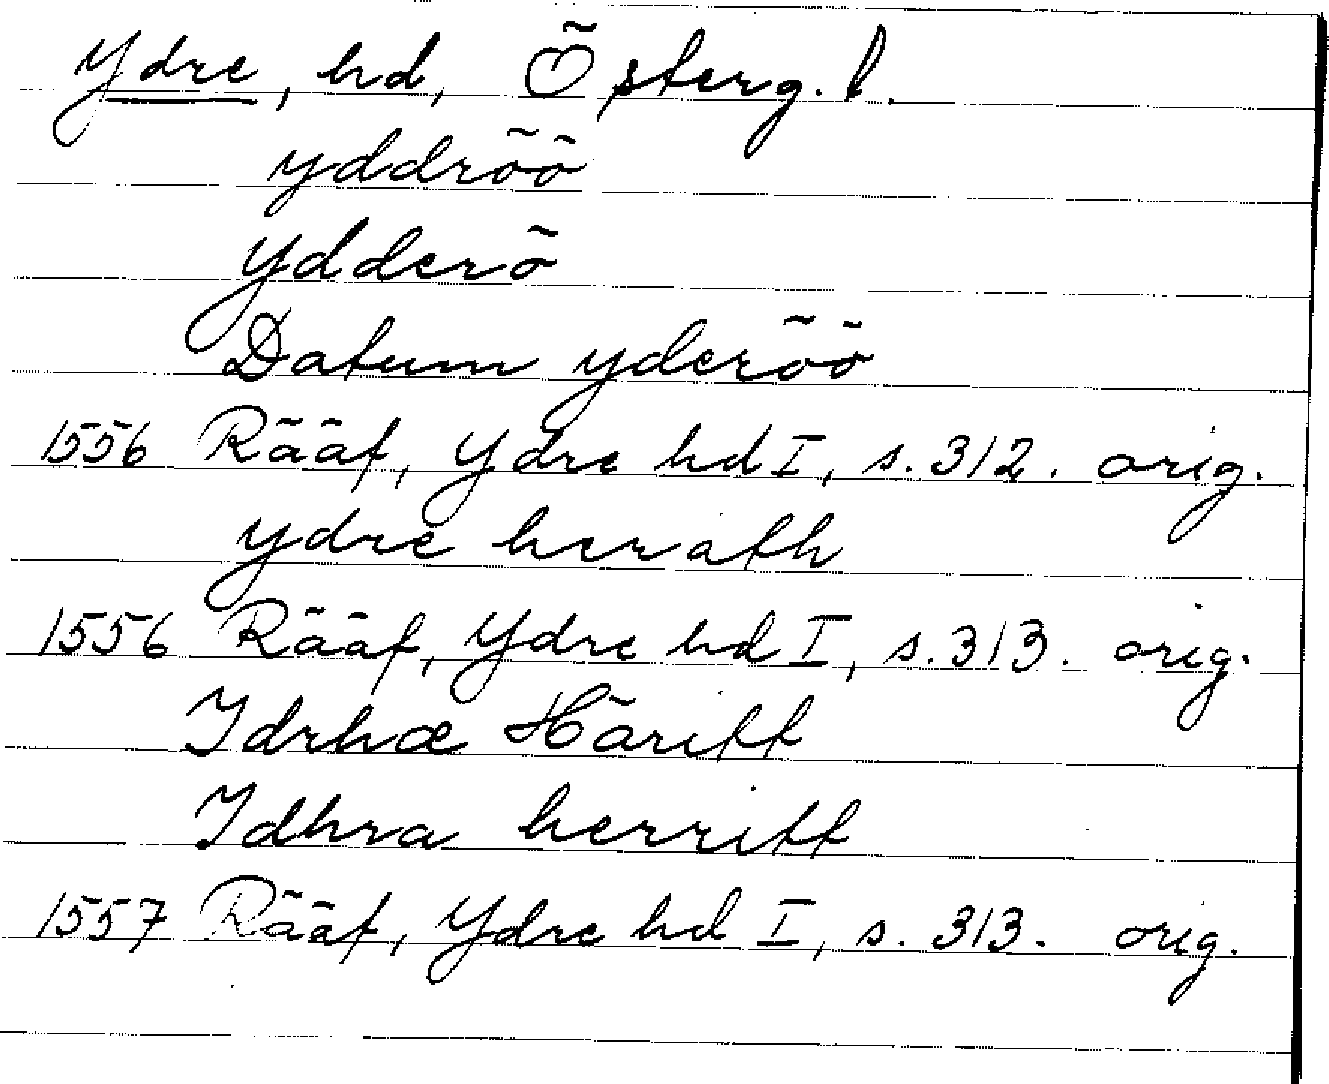 Ydre, hd, Österg. l.
yddröö
Ydderö
Datum yderöö
1556 Rääf, Ydre hd I, s. 312. orig.
ydre herath
1556 Rääf, Ydre hd I, s. 313. orig.
Idrhæ Häritt
Idhra herritt
1557 Rääf, Ydre hd I, s. 313. orig.